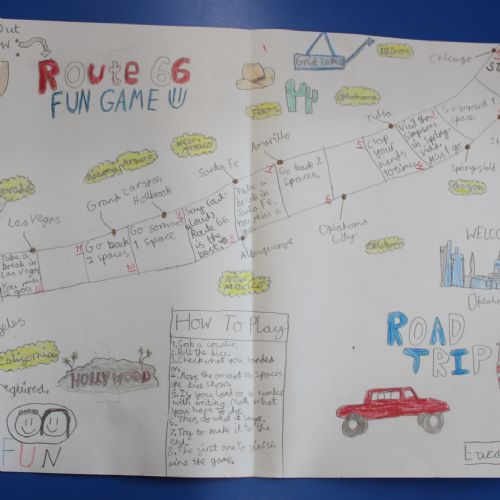 Out
Route 66
FUN GAME
Illinois
Chicago
Great Lakes
Texas
Oklahoma
Tulsa
Amarillo
New Mexico
Santa Fe
Grand Canyon
Holbrook
Las Vegas
Take a
break in
Las Vegas
You miss
Go back
2 spaces
Go forward
1 space
Say out
Loud
Route 66
is the
best
Take a
break in
Santa Fe.
You miss a
go.
Go back 2
spaces.
Clap
your
hands
10 times
Visit the
Simpsons
in Spring
field.
Miss 1 go
Go forward 1
space.
Springfield
Oklahoma
City
Albuquerque
New
Mexico
WELCO
Oklaho
California
HOLLYWOOD
required.
FUN
How To Play
1. Grab a counter.
2. Roll the dice.
3. Check what you landed
on
4. Move the amount of spaces
the dice shows.
5. If you land on a number
with writing read what
you have to do.
6. Then do what it says.
7. Try to make it to the
end.
8. The first one to finish
wins the game.
ROAD
TRIP